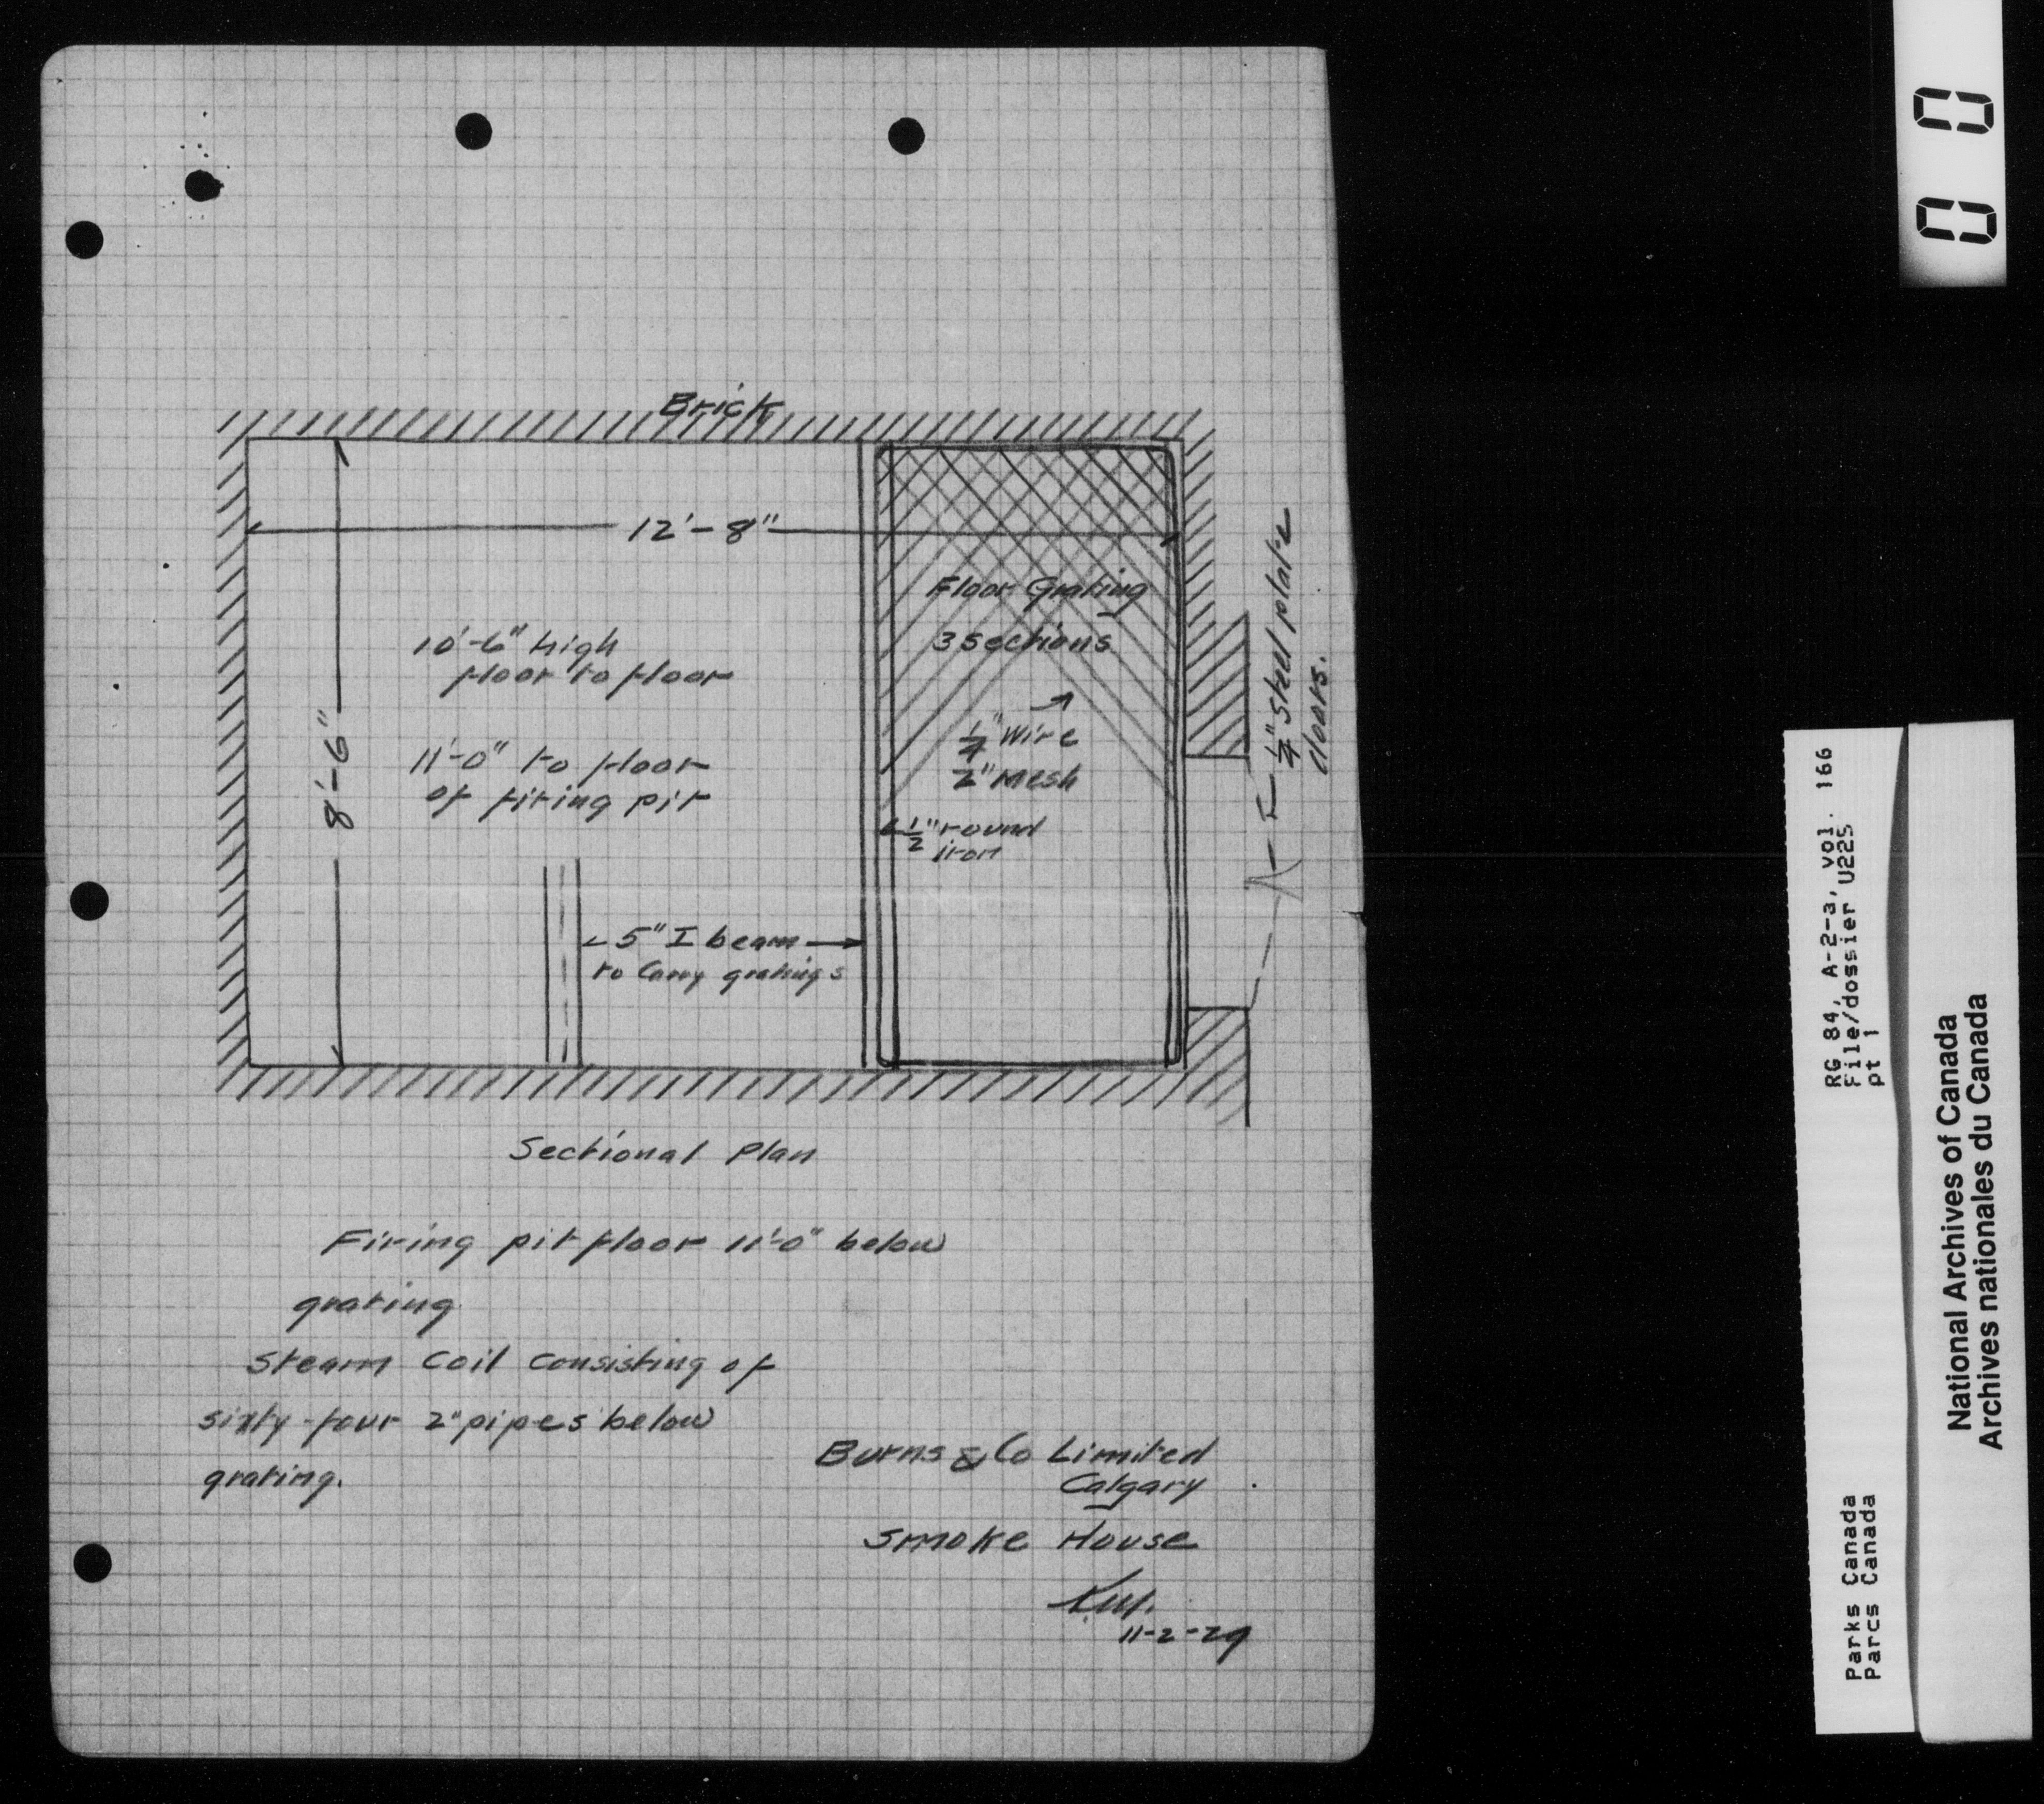 Brick
12'-8"
8'-6"
10'-6" high
floor to floor
11'-0" to floor
of firing pit
Floor Grating
3 sections
1/4" Wire
2" Mesh
1/2" round
iron
5" I beam
to Carry gratings
1/4" steel plate
doors.
Sectional Plan
Firing pit floor 11'-0" below
grating
Steam Coil Consisting of
sixty-four 2" pipes below
grating.
Burns & Co Limited
Calgary
Smoke House
11-2-29
00
RG 84, A-2-a, vol. 166
File/dossier U225
pt 1
Parks Canada
Parcs Canada
National Archives of Canada
Archives nationales du Canada